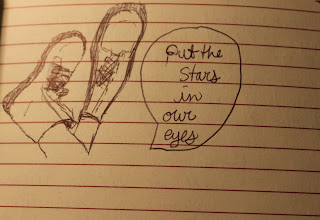 put the
stars
in
our
eyes